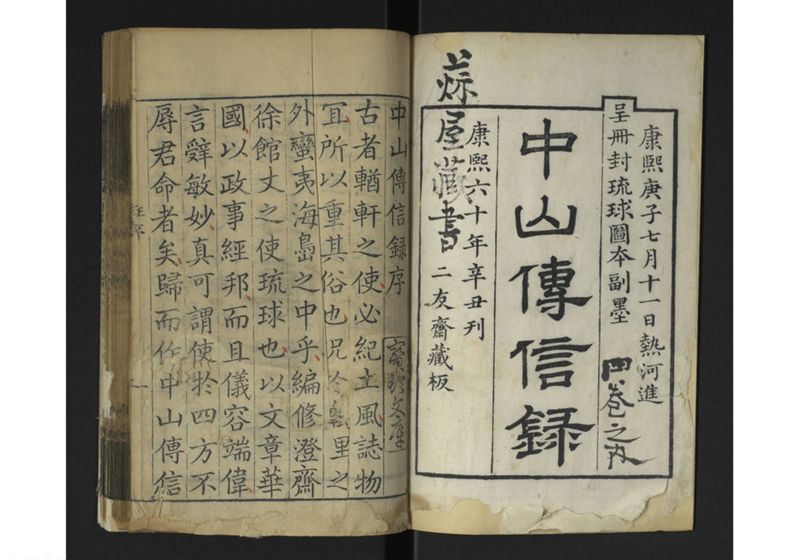 康熙庚子七月十一日熱河進
呈冊封琉球圖夲副墨
四巻之
中山傳信録
康熙六十年辛丑刊
二友齋藏板
屋藏書
中山傳信録序
寶玲文庫
古者輶軒之使必紀土風誌物
冝所以重其俗也况於里之
外蠻夷海島之中乎編修澄齋
徐館丈之使琉球也以文章華
國以政事經邦而且儀容端偉
言辭敏妙真可謂使於四方不
辱君命者矣歸而作中山傳信
汪序
一